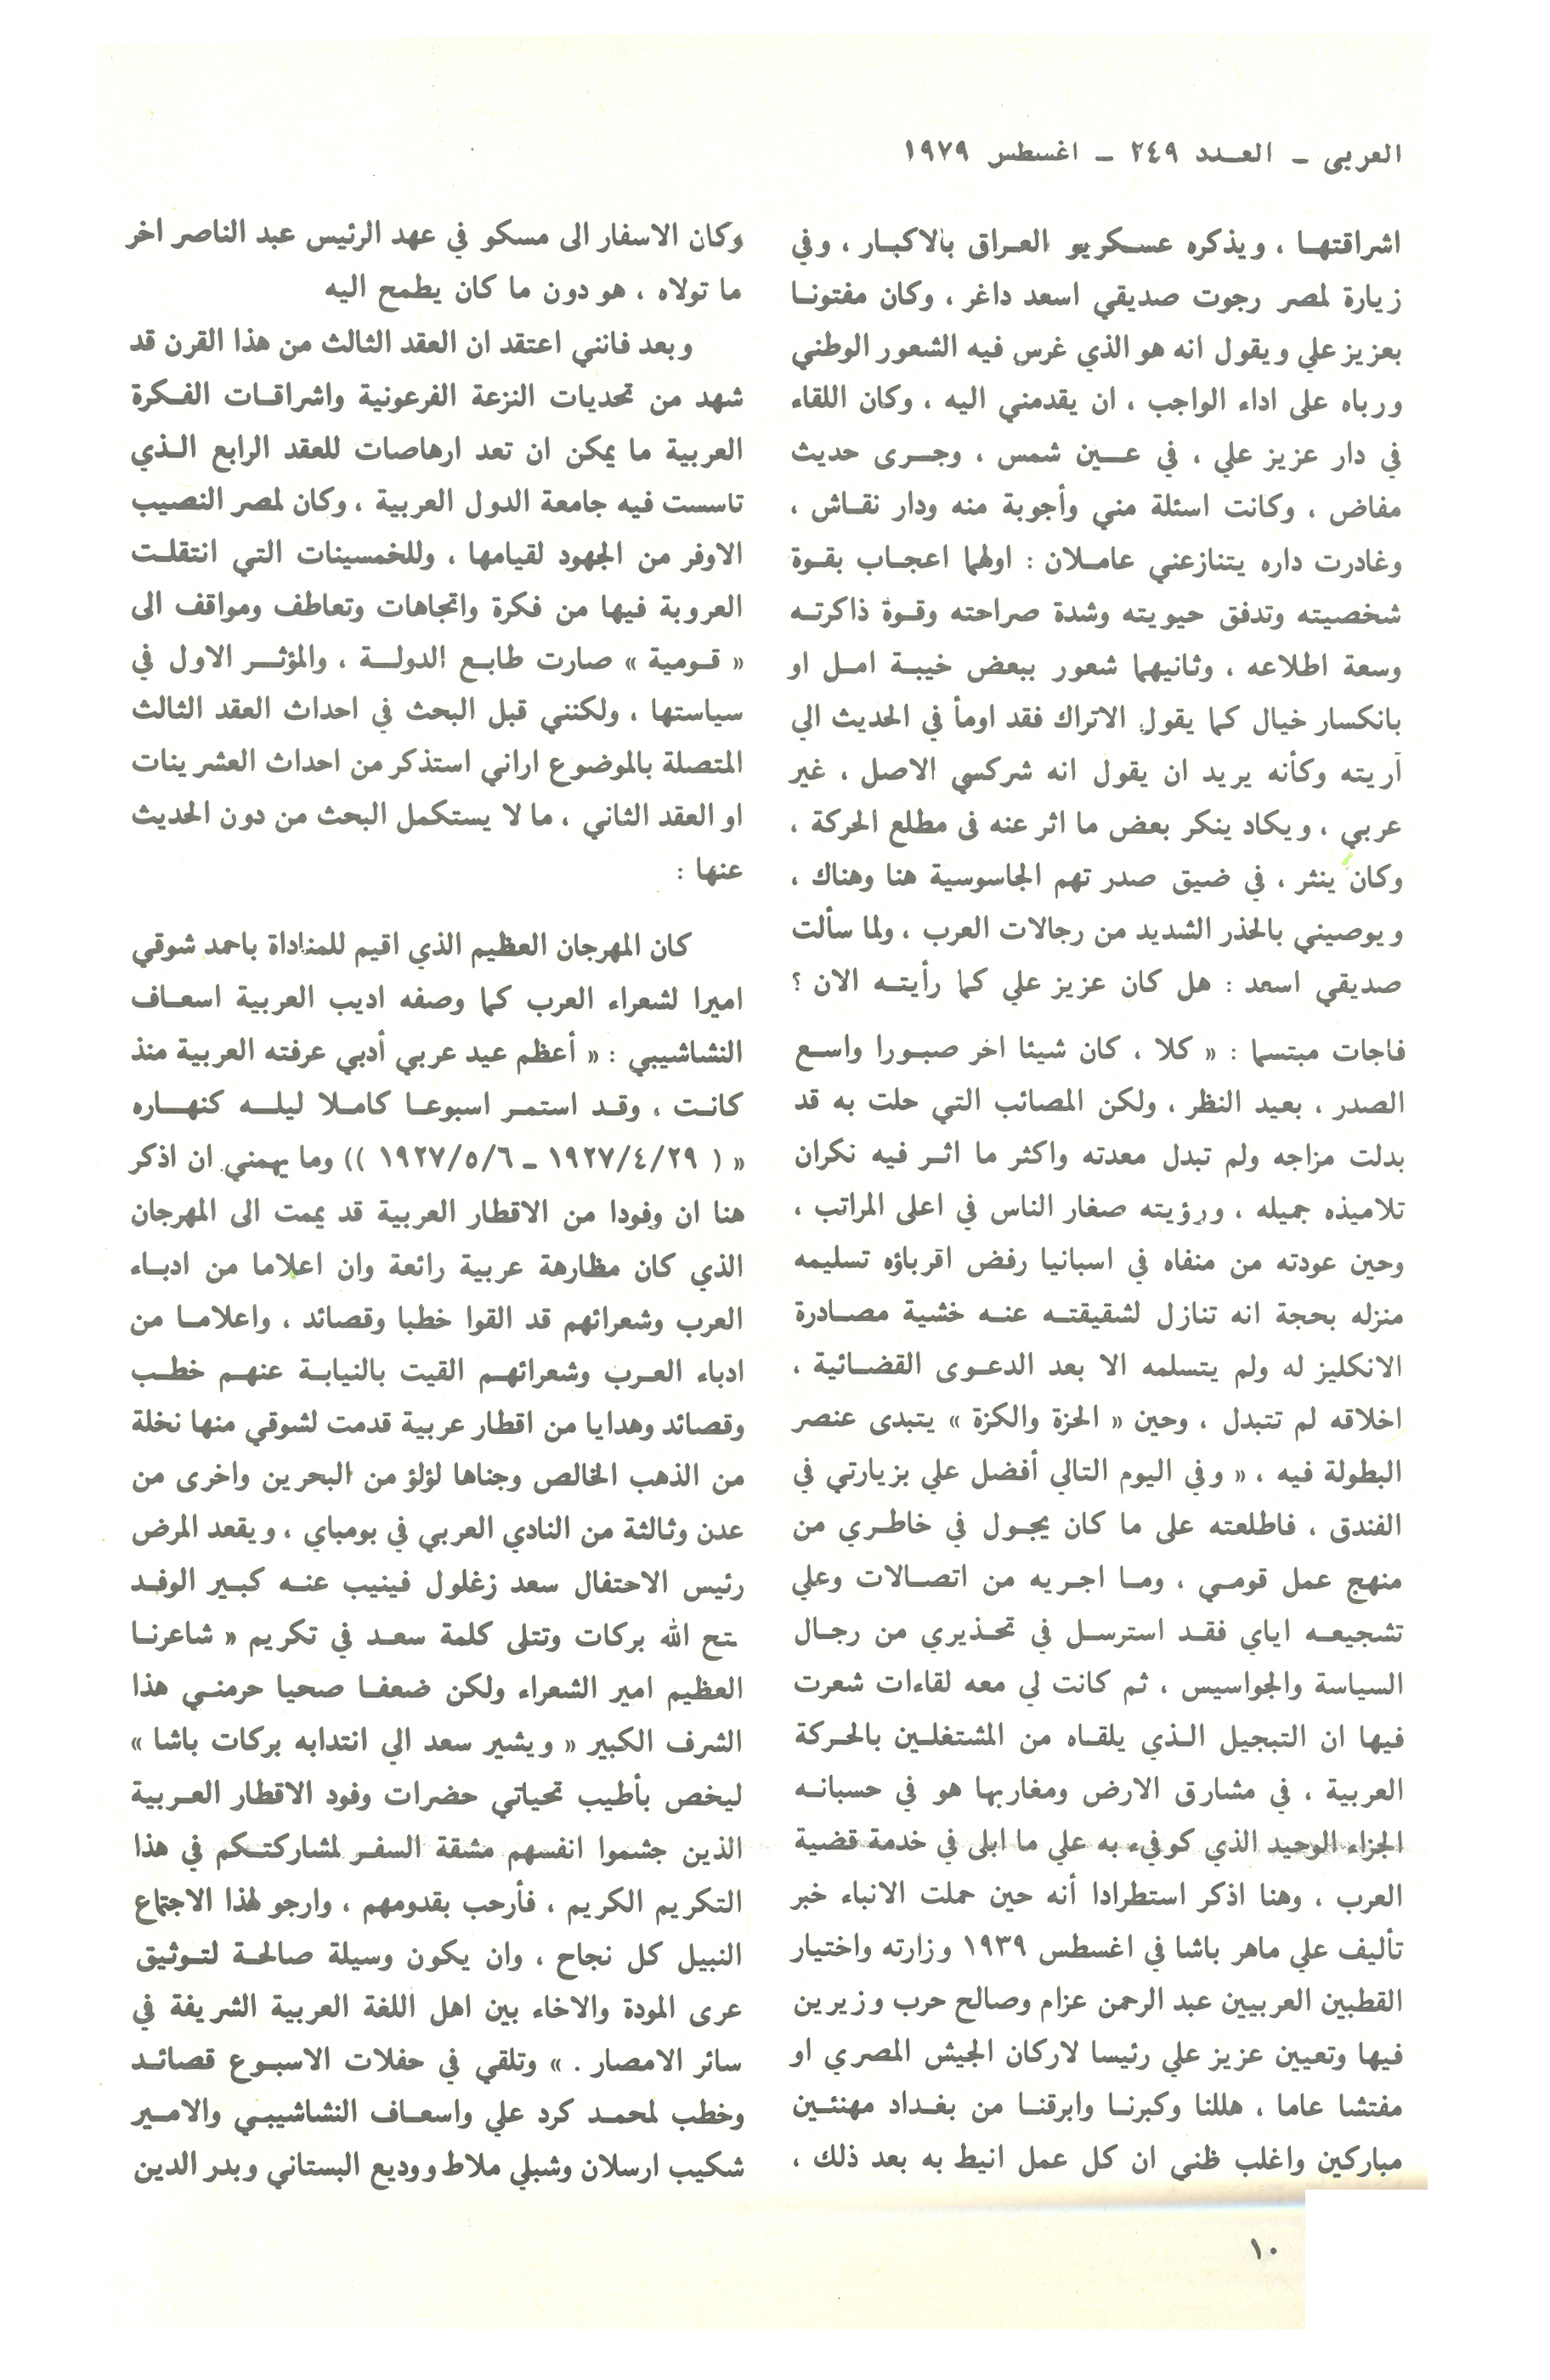 العربي ـ العـدد ٢٤٩ ـ اغسطس ١٩٧٩
اشراقتهـا ، ويذكره عسـكريو العـراق بالاكبـار ، وفي
زيارة لمصر رجوت صديقي اسعد داغر ، وكان مفتونـا
بعزيز علي ويقول انه هو الذي غرس فيه الشعور الوطني
ورباه على اداء الواجب ، ان يقدمني اليه ، وكان اللقاء
في دار عزيز علي ، في عـين شمس ، وجـرى حديث
مفاض ، وكانت اسئلة مني وأجوبة منه ودار نقـاش ،
وغادرت داره يتنازعني عامـلان : اولهما اعجـاب بقـوة
شخصيته وتدفق حيويته وشدة صراحته وقـوة ذاكرتـه
وسعة اطلاعه ، وثانيهما شعور ببعض خيبـة امـل او
بانكسار خيال كما يقول الاتراك فقد اومأ في الحديث الي
آريته وكأنه يريد ان يقول انه شركسي الاصل ، غير
عربي ، ويكاد ينكر بعض ما اثر عنه فى مطلع الحركة ،
وكان ينثر ، في ضيق صدر تهم الجاسوسية هنا وهناك ،
ويوصيني بالحذر الشديد من رجالات العرب ، ولما سألت
صديقي اسعد : هل كان عزيز علي كما رأيتـه الان ؟
فاجات مبتسما : « كلا ، كان شيئا اخر صبـورا واسـع
الصدر ، بعيد النظر ، ولكن المصائب التي حلت به قد
بدلت مزاجه ولم تبدل معدته واكثر ما اثـر فيه نكران
تلاميذه جميله ، ورؤيته صغار الناس في اعلى المراتب ،
وحين عودته من منفاه في اسبانيا رفض اقرباؤه تسليمه
منزله بحجة انه تنازل لشقيقتـه عنـه خشية مصـادرة
الانكليز له ولم يتسلمه الا بعد الدعـوى القضـائية ،
اخلاقه لم تتبدل ، وحين « الحزة والكزة » يتبدى عنصر
البطولة فيه ، « وفي اليوم التالي أفضل علي بزيارتي في
الفندق ، فاطلعته على ما كان يجـول في خاطـري من
منهج عمل قومـي ، ومـا اجـريه من اتصـالات وعلي
تشجيعـه اياي فقـد استرسـل في تحـذيري من رجـال
السياسة والجواسيس ، ثم كانت لي معه لقاءات شعرت
فيها ان التبجيل الـذي يلقـاه من المشتغلـين بالحـركة
العربية ، في مشارق الارض ومغاربها هو في حسبانـه
الجزاء الوحيد الذي كوفيء به علي ما ابلى في خدمة قضية
العرب ، وهنا اذكر استطرادا أنه حين حملت الانباء خبر
تأليف علي ماهر باشا في اغسطس ١٩٣٩ وزارته واختيار
القطبين العربيين عبد الرحمن عزام وصالح حرب وزيرين
فيها وتعيين عزيز علي رئيسا لاركان الجيش المصري او
مفتشا عاما ، هللنا وكبرنـا وابرقنـا من بغـداد مهنئـين
مباركين واغلب ظني ان كل عمل انيط به بعد ذلك ،
وكان الاسفار الى مسكو في عهد الرئيس عبد الناصر اخر
ما تولاه ، هو دون ما كان يطمح اليه
وبعد فانني اعتقد ان العقد الثالث من هذا القرن قد
شهد من تحديات النزعة الفرعونية واشراقـات الفـكرة
العربية ما يمكن ان تعد ارهاصات للعقد الرابع الـذي
تاسست فيه جامعة الدول العربية ، وكان لمصر النصيب
الاوفر من الجهود لقيامها ، وللخمسينات التي انتقلـت
العروبة فيها من فكرة واتجاهات وتعاطف ومواقف الى
« قـومية » صارت طابـع الدولـة ، والمؤثـر الاول في
سياستها ، ولكنني قبل البحث في احداث العقد الثالث
المتصلة بالموضوع اراني استذكر من احداث العشرينات
او العقد الثاني ، ما لا يستكمل البحث من دون الحديث
عنها :
كان المهرجان العظيم الذي اقيم للمناداة باحمد شوقي
اميرا لشعراء العرب كما وصفه اديب العربية اسعـاف
النشاشيبي : « أعظم عيد عربي أدبي عرفته العربية منذ
كانـت ، وقـد استمـر اسبوعـا كامـلا ليلـه كنهـاره
« ( ١٩٢٧/٤/٢٩ ـ ١٩٢٧/٥/٦ )) وما يهمني ان اذكر
هنا ان وفودا من الاقطار العربية قد يممت الى المهرجان
الذي كان مظارهة عربية رائعة وان اعلاما من ادبـاء
العرب وشعرائهم قد القوا خطبا وقصائد ، واعلامـا من
ادباء العـرب وشعرائهـم القيت بالنيابـة عنهـم خطـب
وقصائد وهدايا من اقطار عربية قدمت لشوقي منها نخلة
من الذهب الخالص وجناها لؤلؤ من البحرين واخرى من
عدن وثالثة من النادي العربي في بومباي ، ويقعد المرض
رئيس الاحتفال سعد زغلول فينيب عنـه كبـير الوفـد
ـتح الله بركات وتتلى كلمة سعـد في تكريم « شاعرنـا
العظيم امير الشعراء ولكن ضعفـا صحيا حرمنـي هذا
الشرف الكبير « ويشير سعد الي انتدابه بركات باشا »
ليخص بأطيب تحياتي حضرات وفود الاقطار العـربية
الذين جشموا انفسهم مشقة السفـر لمشاركتـكم في هذا
التكريم الكريم ، فأرحب بقدومهم ، وارجو لهذا الاجتماع
النبيل كل نجاح ، وان يكون وسيلة صالحـة لتـوثيق
عرى المودة والاخاء بين اهل اللغة العربية الشريفة في
سائر الامصار . » وتلقي في حفلات الاسبـوع قصائـد
وخطب لمحمـد كرد علي واسعـاف النشاشيبـي والامـير
شكيب ارسلان وشبلي ملاط ووديع البستاني وبدر الدين
١٠